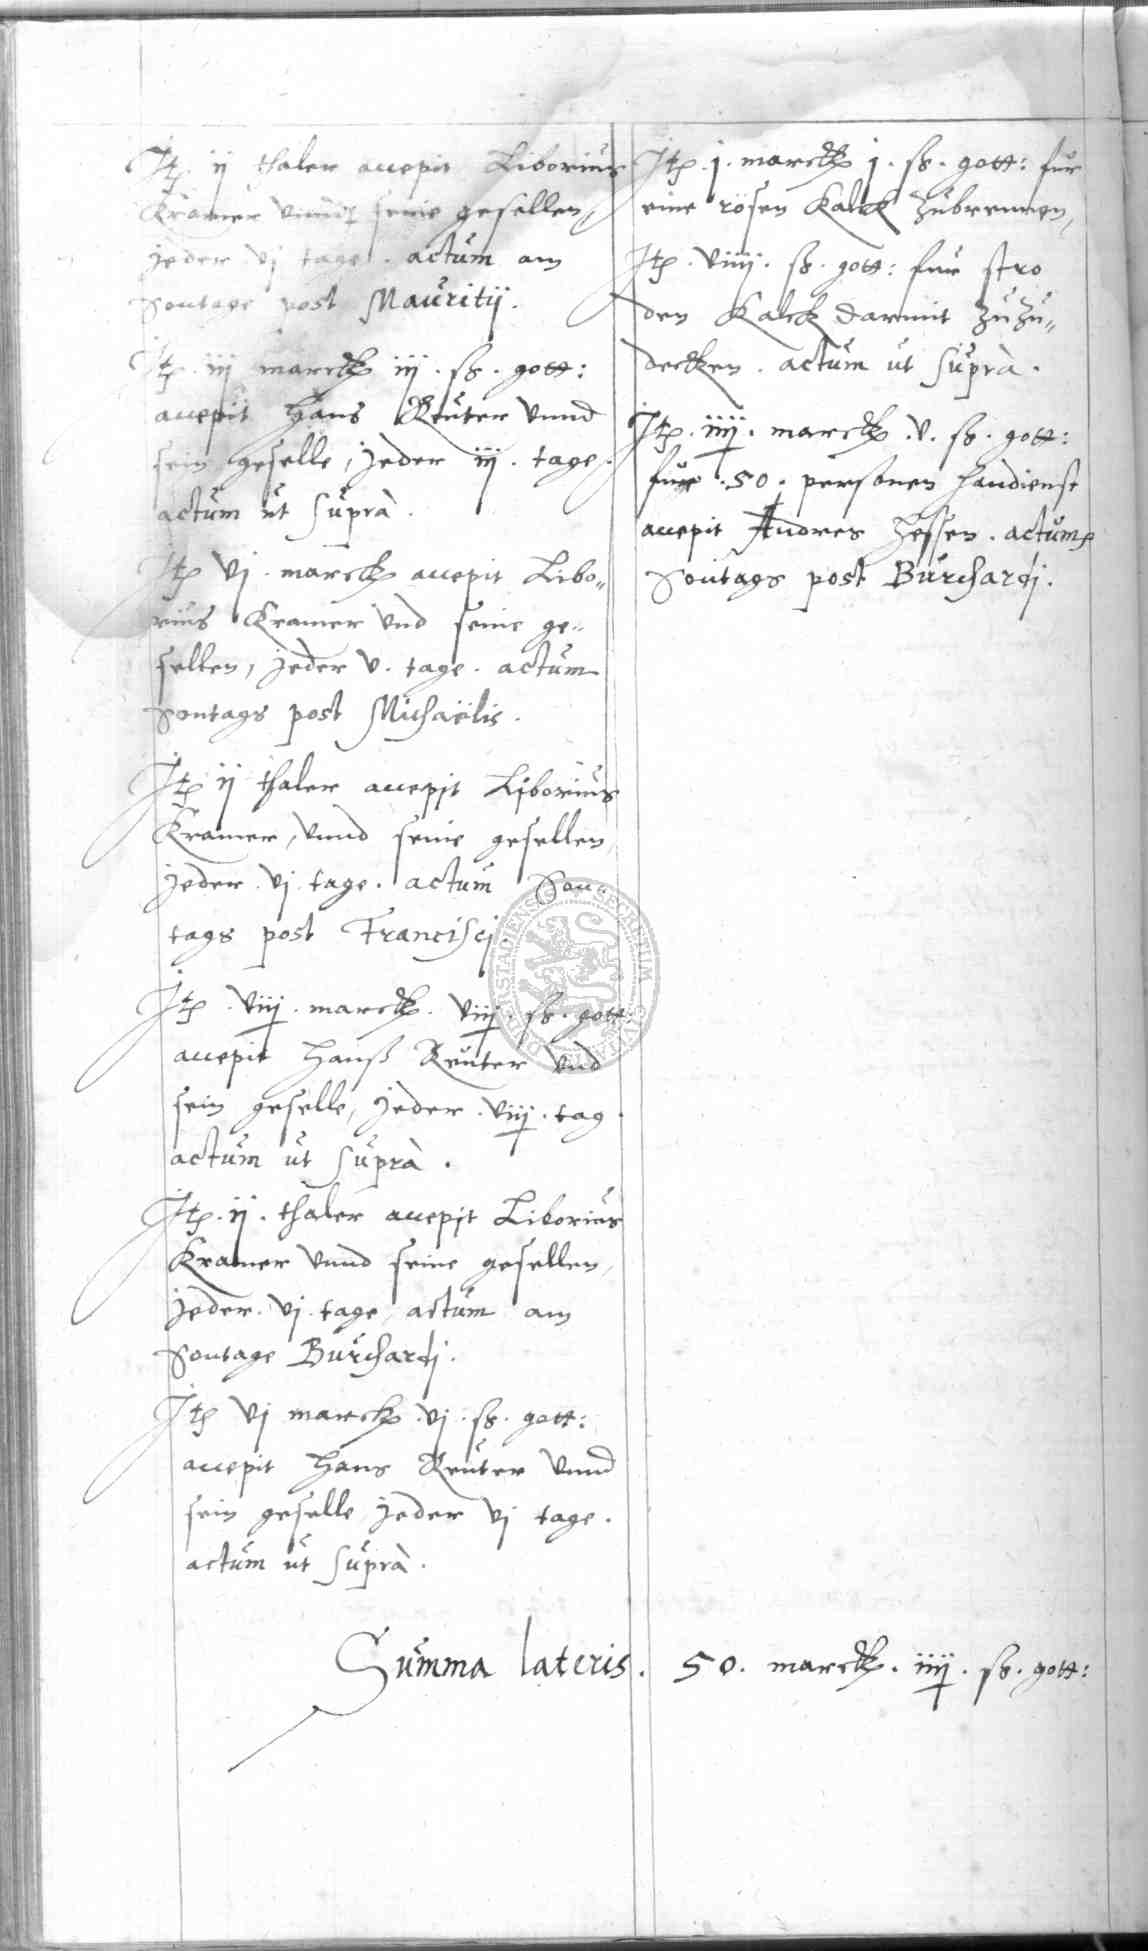 Jtem ij thaler accepit Liborius
Kramer vnnd seine gesellen,
jeder vj tage. actum am
Sontage post Mauritij.
Jtem iij marck iij. ß. gott:
accepit Hans Reuter vnnd
sein geselle, jeder iij. tage.
actum ut suprà.
Jtem vj. marck accepit Libo„
rius Kramer vnd seine ge„
sellen, jeder v. tage. actum
Sontags post Michaëlis.
Jtem ij thaler accepit Liborius
Kramer, vnnd seine gesellen,
jeder. vj. tage. actum Son„
tags post Francisci.
Jtem. viij. marck. viij. ß. gott.
accepit Hanß Reuter vnd
sein geselle, jeder. viij. tag.
actum ut suprà.
Jtem. ij. thaler accepit Liborius
Kramer vnnd seine gesellen,
jeder. vj. tage, actum am
Sontage Burchardj.
Jtem vj marck. vj. ß. gott:
accepit Hans Reuter vnnd
sein geselle, jeder vj tage.
actum ut suprà.
Jtem. j. marck j. ß. gott: fur
eine rösen Kalck zubrennen,
Jtem. viiij. ß. gott: fur stro
den Kalck darmit zuzu„
decken. actum ut suprà.
Jtem. iiij. marck. v. ß. gott:
fur. 50. personen handienst
accepit Andres Hessen. actum
Sontags post Burchardj.
Summa lateris. 50. marck. iiij. ß. gott:
SECRETUM CIVITATIS DUDERSTADIENSIS